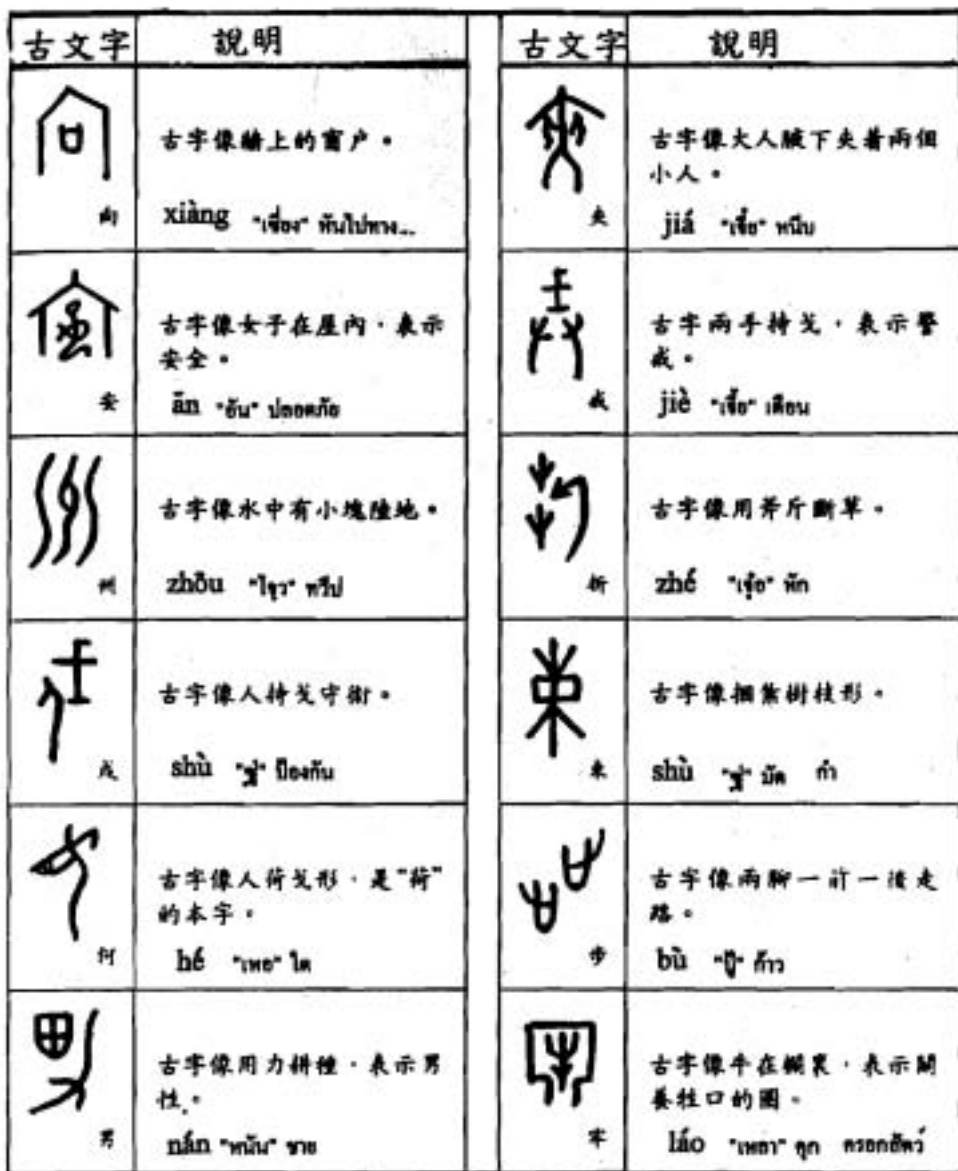 古文字 說明
向
古字像牆上的窗户。
xiàng "เซี่ยง" หันไปทาง...
安
古字像女子在屋內，表示
安全。
ān "อัน" ปลอดภัย
州
古字像水中有小塊陸地。
zhōu "โจว" ทวีป
戍
古字像人持戈守衛。
shù "ซู่" ป้องกัน
何
古字像人荷戈形，是"荷"
的本字。
hé "เหอ" ใด
男
古字像用力耕種，表示男
性。
nán "หนัน" ชาย
古文字 說明
夾
古字像大人腋下夹着兩個
小人。
jiá "เจี๋ย" หนีบ
戒
古字兩手持戈，表示警
戒。
jiè "เจี้ย" เตือน
折
古字像用斧斤斷草。
zhé "เจ๋อ" หัก
束
古字像捆紮樹枝形。
shù "ซู่" มัด กำ
步
古字像兩腳一前一後走
路。
bù "ปู้" ก้าว
牢
古字像牛在欄裏，表示關
養牲口的圈。
láo "เหลา" คุก ครอกสัตว์